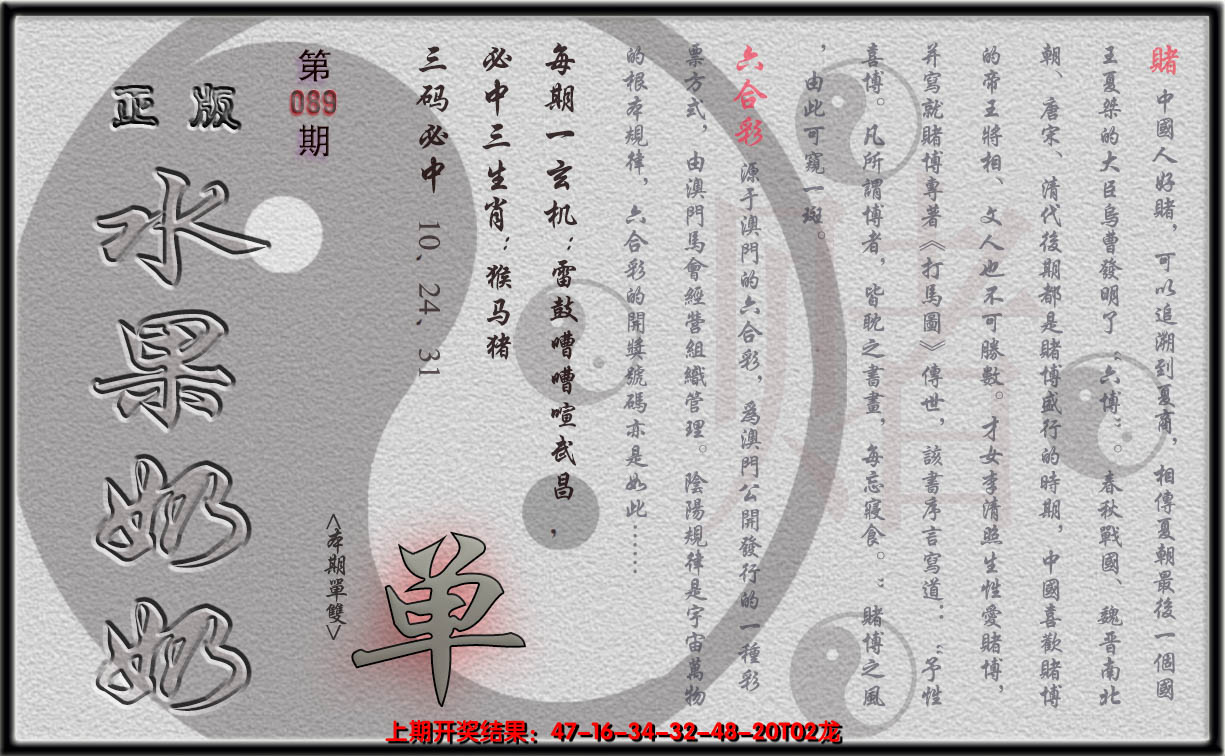 賭 中國人好賭，可以追溯到夏商，相傳夏朝最後一個國
王夏桀的大臣烏曹發明了“六博”。春秋戰國、魏晋南北
朝、唐宋、清代後期都是賭博盛行的時期，中國喜歡賭博
的帝王將相、文人也不可勝數。才女李清照生性愛賭博，
并寫就賭博專著《打馬圖》傳世，該書序言寫道：“予性
喜博。凡所謂博者，皆耽之書畫，每忘寢食。”賭博之風
，由此可窺一斑。
六合彩 源于澳門的六合彩，為澳門公開發行的一種彩
票方式，由澳門馬會經營組織管理。陰陽規律是宇宙萬物
的根本規律，六合彩的開獎號碼亦是如此……
每期一玄机：雷鼓嘈嘈喧武昌，
必中三生肖：猴马猪
三码必中 10、24、31
第089期
<本期單雙>
单
正版
水果奶奶
上期开奖结果：47-16-34-32-48-20T02龙